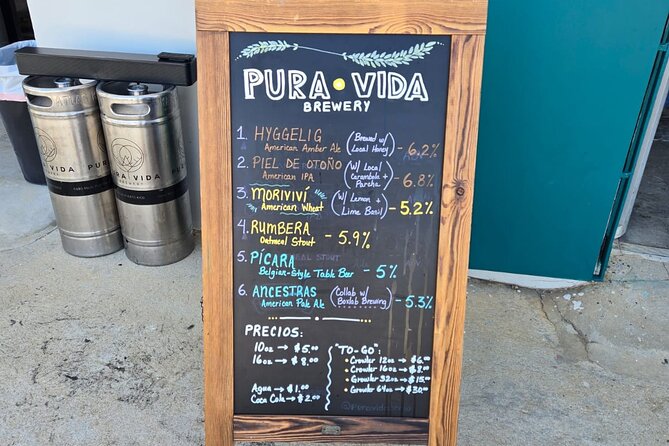 PURA VIDA
BREWERY
1. HYGGELIG
American Amber Ale
(Brewed w/
Local Honey)
- 6.2%
2. PIEL DE OTOÑO
American IPA
(w/ Local
Carambola +
Parcha)
- 6.8%
3. MORIVIVÍ
American Wheat
(w/ Lemon +
Lime Basil)
- 5.2%
4. RUMBERA
Oatmeal Stout
- 5.9%
5. PÍCARA
Belgian-Style Table Beer
- 5%
6. ANCESTRAS
American Pale Ale
(Collab w/
Boxlab Brewing)
- 5.3%
PRECIOS:
10oz → $5.00
16oz → $8.00
Agua → $1.00
Coca Cola → $2.00
"TO-GO":
• Crowler 12oz → $6.00
• Crowler 16oz → $8.00
• Growler 32oz → $15.00
• Growler 64oz → $30.00
PURA VIDA
BREWERY